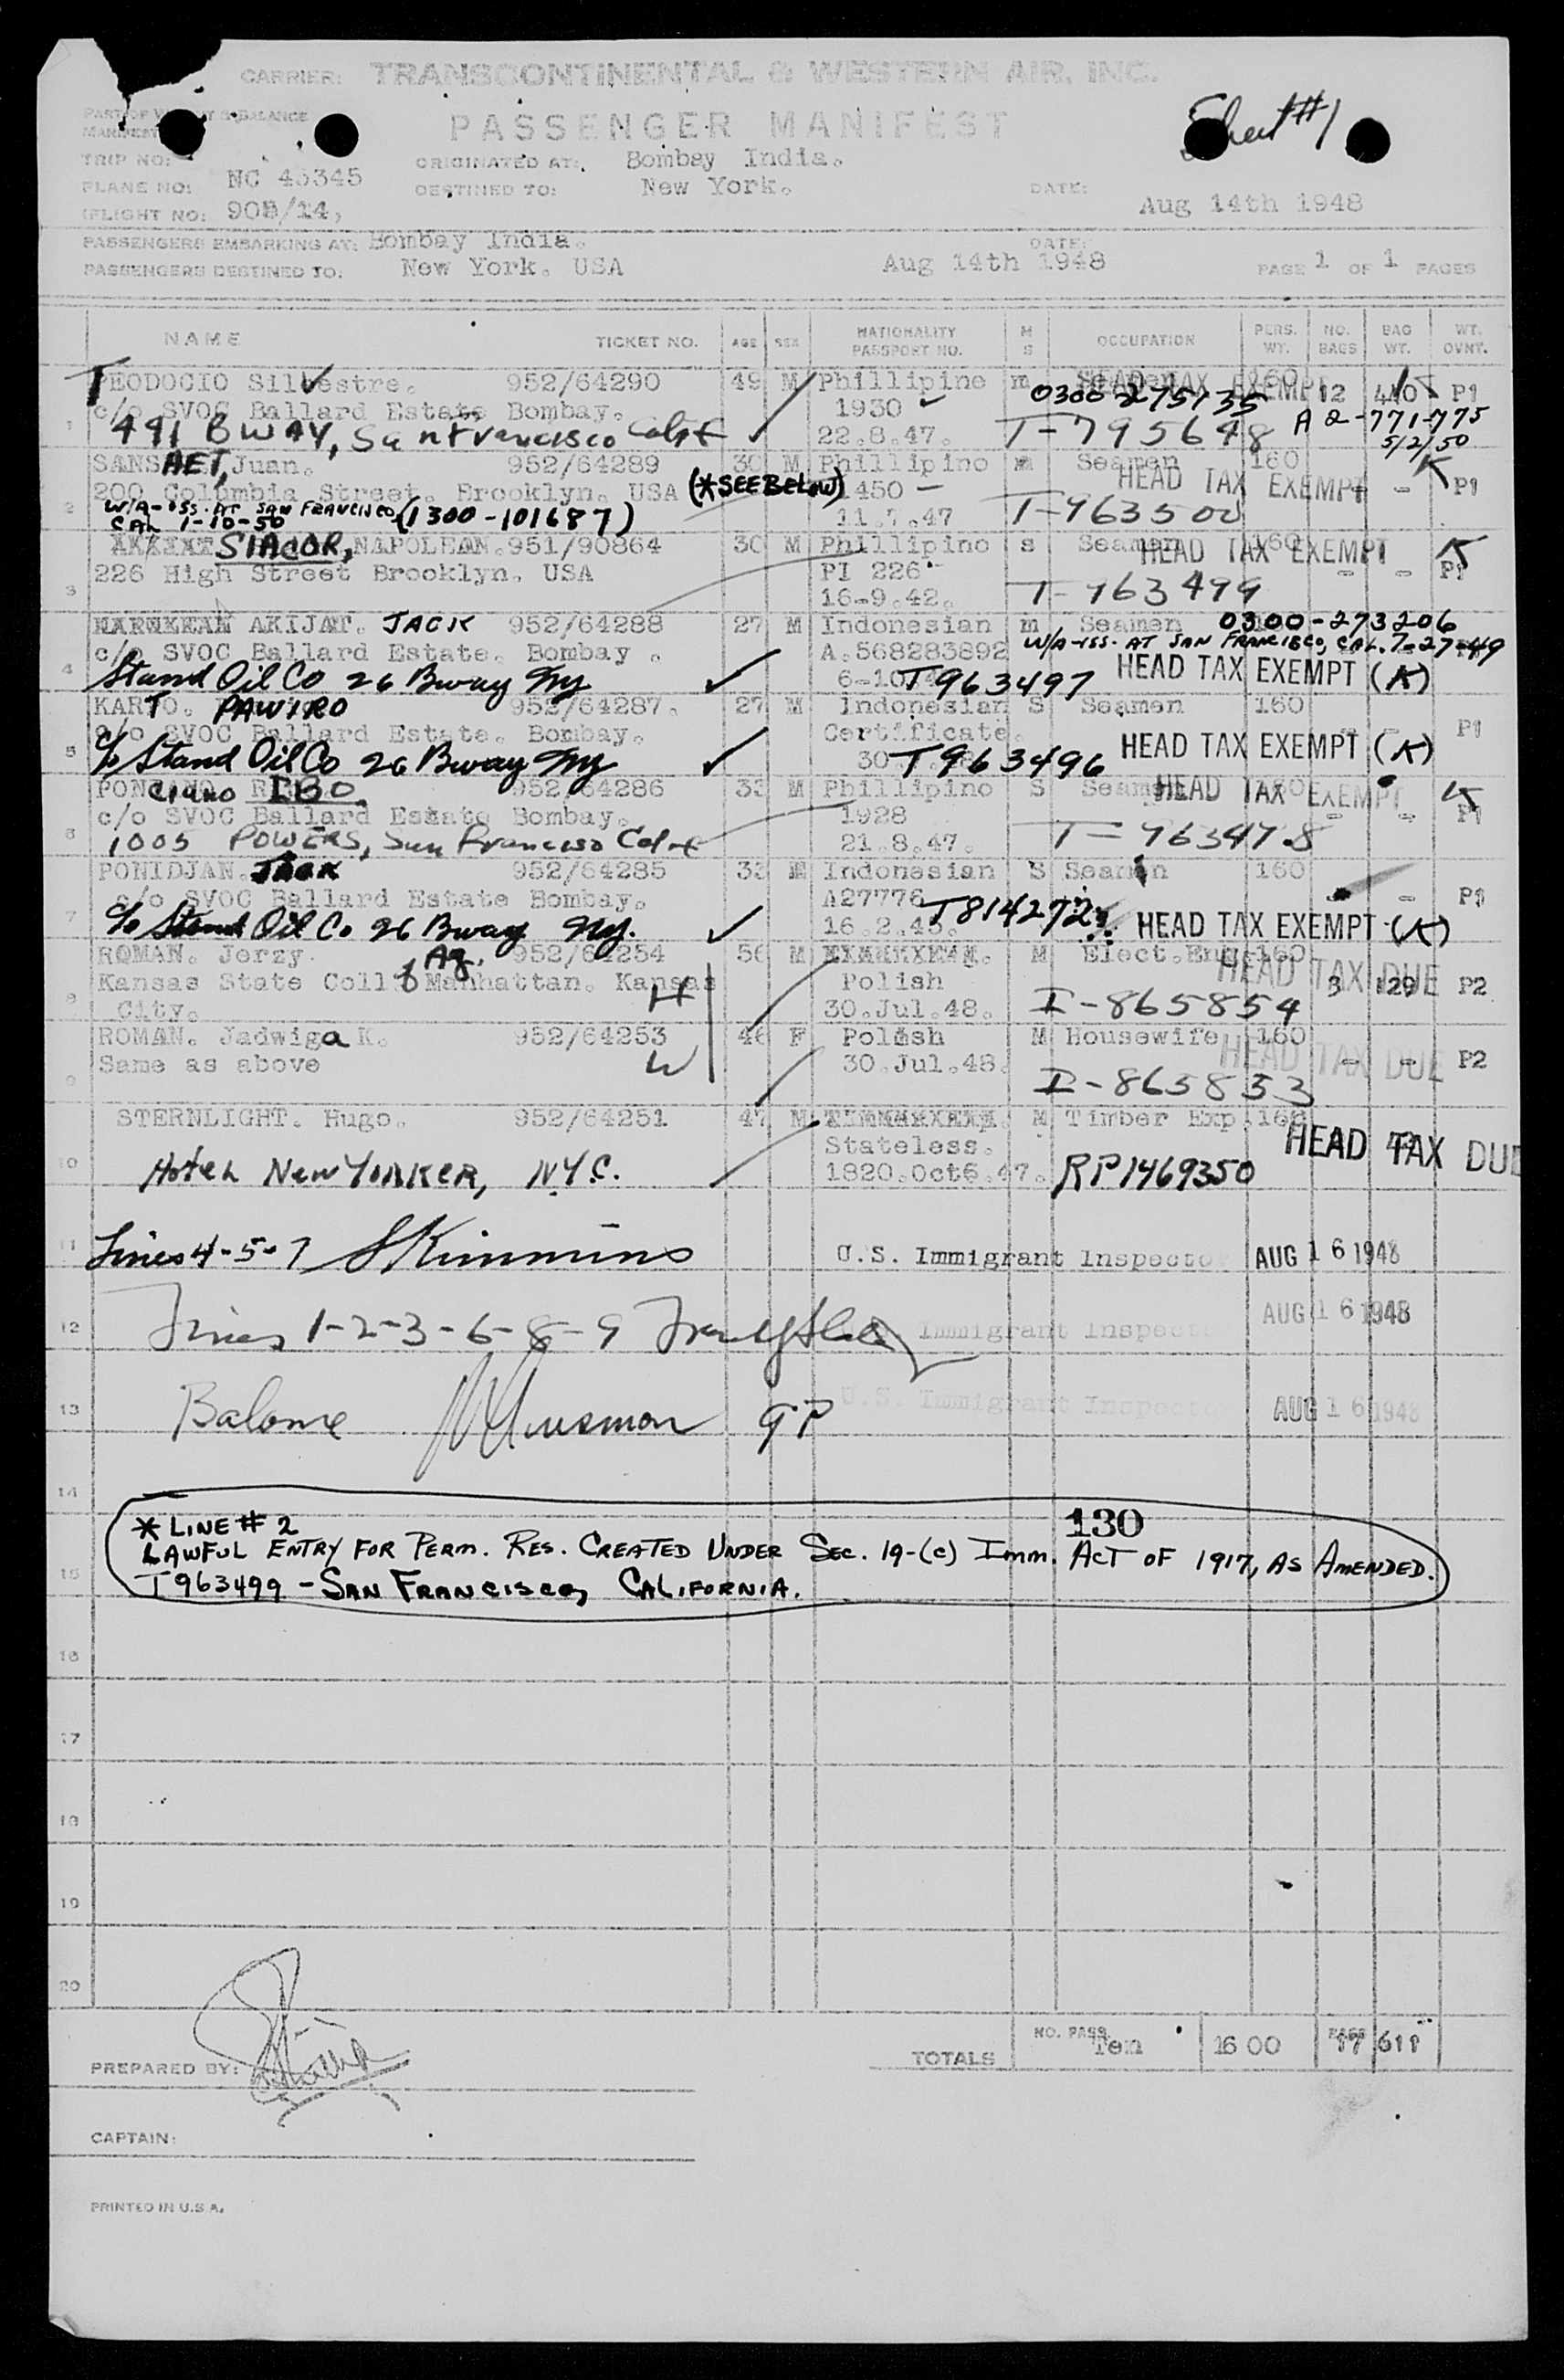 Sheet #1
CARRIER: TRANSCONTINENTAL & WESTERN AIR, INC.
PASSENGER MANIFEST
TRIP NO:
ORIGINATED AT: Bombay India.
PLANE NO: NC 45345
DESTINED TO: New York.
DATE: Aug 14th 1948
FLIGHT NO: 908/14,
PASSENGERS EMBARKING AT: Bombay India.
DATE:
PASSENGERS DESTINED TO: New York. USA Aug 14th 1948 PAGE 1 OF 1 PAGES
NAME TICKET NO. AGE SEX NATIONALITY PASSPORT NO. M S OCCUPATION PERS. WT. NO. BAGS BAG WT. WT. OVNT.
TEODOCIO Silvestre. 952/64290 49 M Phillipine m 160 12 440 P1
0300 275135
c/o SVOC Ballard Estate Bombay. 1930 A 2-771-775
1 491 BWAY, San Francisco Calif 22.8.47. T-795648 5/2/50
SANS AET, Juan. 952/64289 30 M Phillipino m Seamen 160 HEAD TAX EXEMPT K
200 Columbia Street. Brooklyn. USA (*SEE BELOW) 1450 - - P1
W/A-ISS. AT SAN FRANCISCO (1300-101687)
2 CAL 1-10-50 11.7.47 T-963500
SIACOR, NAPOLEAN. 951/90864 30 M Phillipino s Seamen 160 HEAD TAX EXEMPT K
226 High Street Brooklyn. USA PI 226 - - P1
3 16-9.42. T-963499
AKIJAT. JACK 952/64288 27 M Indonesian m Seamen 0300-273206
c/o SVOC Ballard Estate. Bombay . A.568283892 W/A-ISS. AT SAN FRANCISCO, CAL. 7-27-49
4 Stand Oil Co 26 Bway NY T963497 HEAD TAX EXEMPT (K)
KARTO. PAWIRO 952/64287. 27 M Indonesian S Seamen 160
c/o SVOC Ballard Estate. Bombay. Certificate. P1
5 c/o Stand Oil Co 26 Bway NY T963496 HEAD TAX EXEMPT (K)
PONCIANO IBO 952/64286 33 M Phillipino S Seamen HEAD TAX EXEMPT K
c/o SVOC Ballard Estate Bombay. 1928 - - P1
6 1005 POWERS, San Francisco Calif 21.8.47. T-963478
PONIDJAN. JACK 952/64285 33 M Indonesian S Seaman 160
c/o SVOC Ballard Estate Bombay. A27776 - P1
7 c/o Stand Oil Co 26 Bway NY. 16.2.45. T814272 HEAD TAX EXEMPT (K)
ROMAN. Jerzy. 952/64254 56 M M Elect.Eng 160 HEAD TAX DUE
Kansas State Coll of Ag. Manhattan. Kansas H Polish 3 129 P2
8 City. 30.Jul.48. I-865854
ROMAN. Jadwiga K. 952/64253 46 F Polish M Housewife 160 HEAD TAX DUE
Same as above W 30.Jul.48. - - P2
9 I-865853
STERNLIGHT. Hugo. 952/64251 47 M M Timber Exp HEAD TAX DUE
Stateless.
10 Hotel New Yorker, N.Y.C. 1820.Oct6.47. RP1469350
11 Lines 4-5-7 S Kimmins U.S. Immigrant Inspector AUG 16 1948
12 Lines 1-2-3-6-8-9 Immigrant Inspector AUG 16 1948
13 Balance GP U.S. Immigrant Inspector AUG 16 1948
14
* LINE # 2 130
LAWFUL ENTRY FOR PERM. RES. CREATED UNDER SEC. 19-(C) IMM. ACT OF 1917, AS AMENDED.
15 T963499 - SAN FRANCISCO, CALIFORNIA.
16
17
18
19
20
PREPARED BY:
TOTALS NO. PASS Ten 16 00 17 611
CAPTAIN:
PRINTED IN U.S.A.